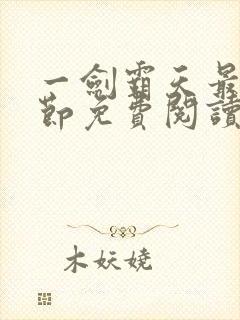 一劍霸天最
節免費閱讀
木妖嬈